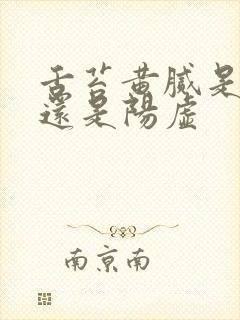 舌苔黄膩是
還是陽虛
南京南